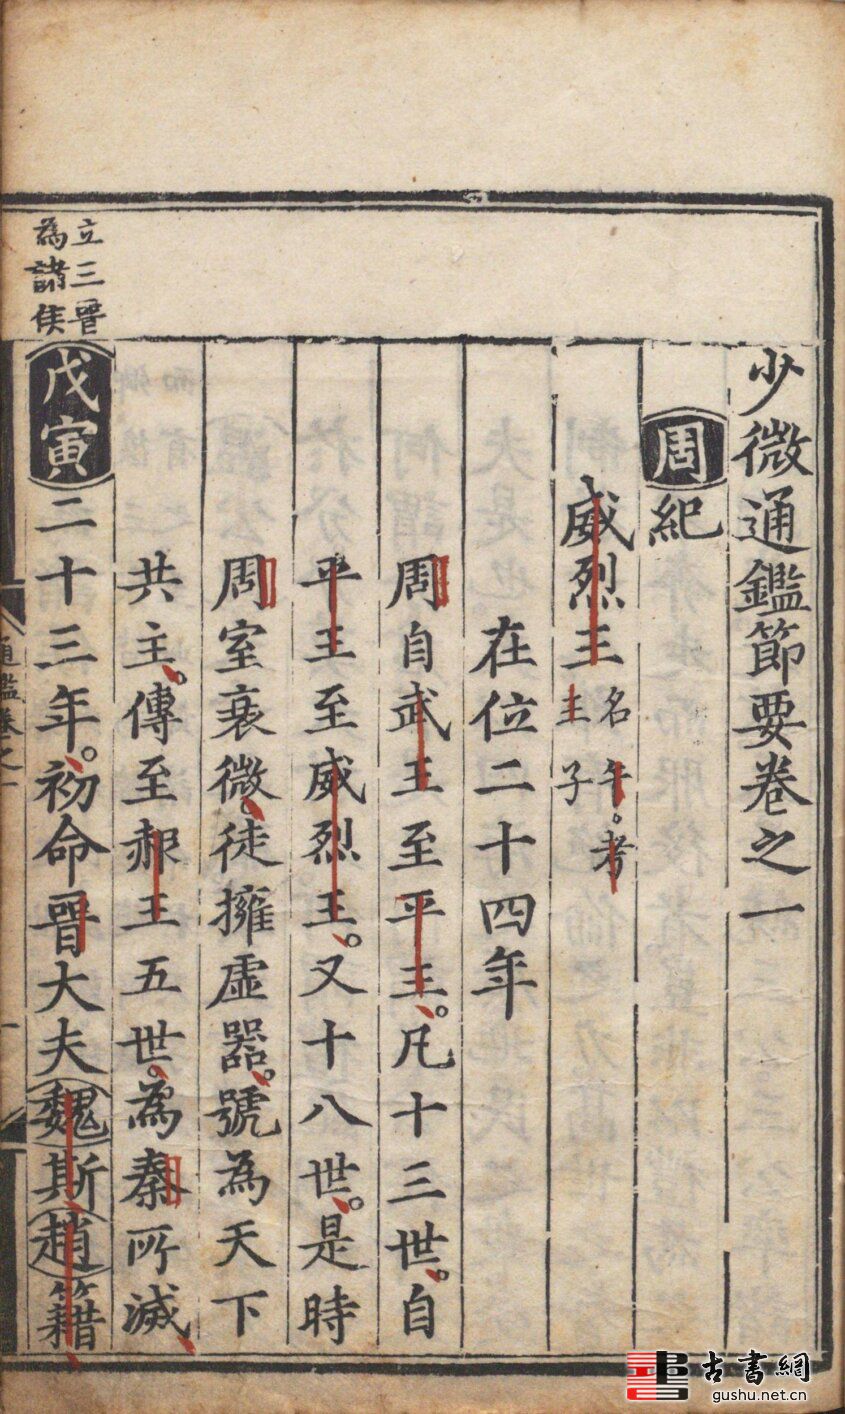 少微通鑑節要卷之一
周紀
威烈王名午。考
王子
在位二十四年
周自武王至平王。凡十三世。自
平王至威烈王。又十八世。是時
周室衰微。徒擁虛器。號為天下
共主。傳至赧王五世。為秦所滅
立三晉
為諸侯
戊寅二十三年。初命晉大夫魏斯趙籍
通鑑卷之一
一
古書網
gushu.net.cn